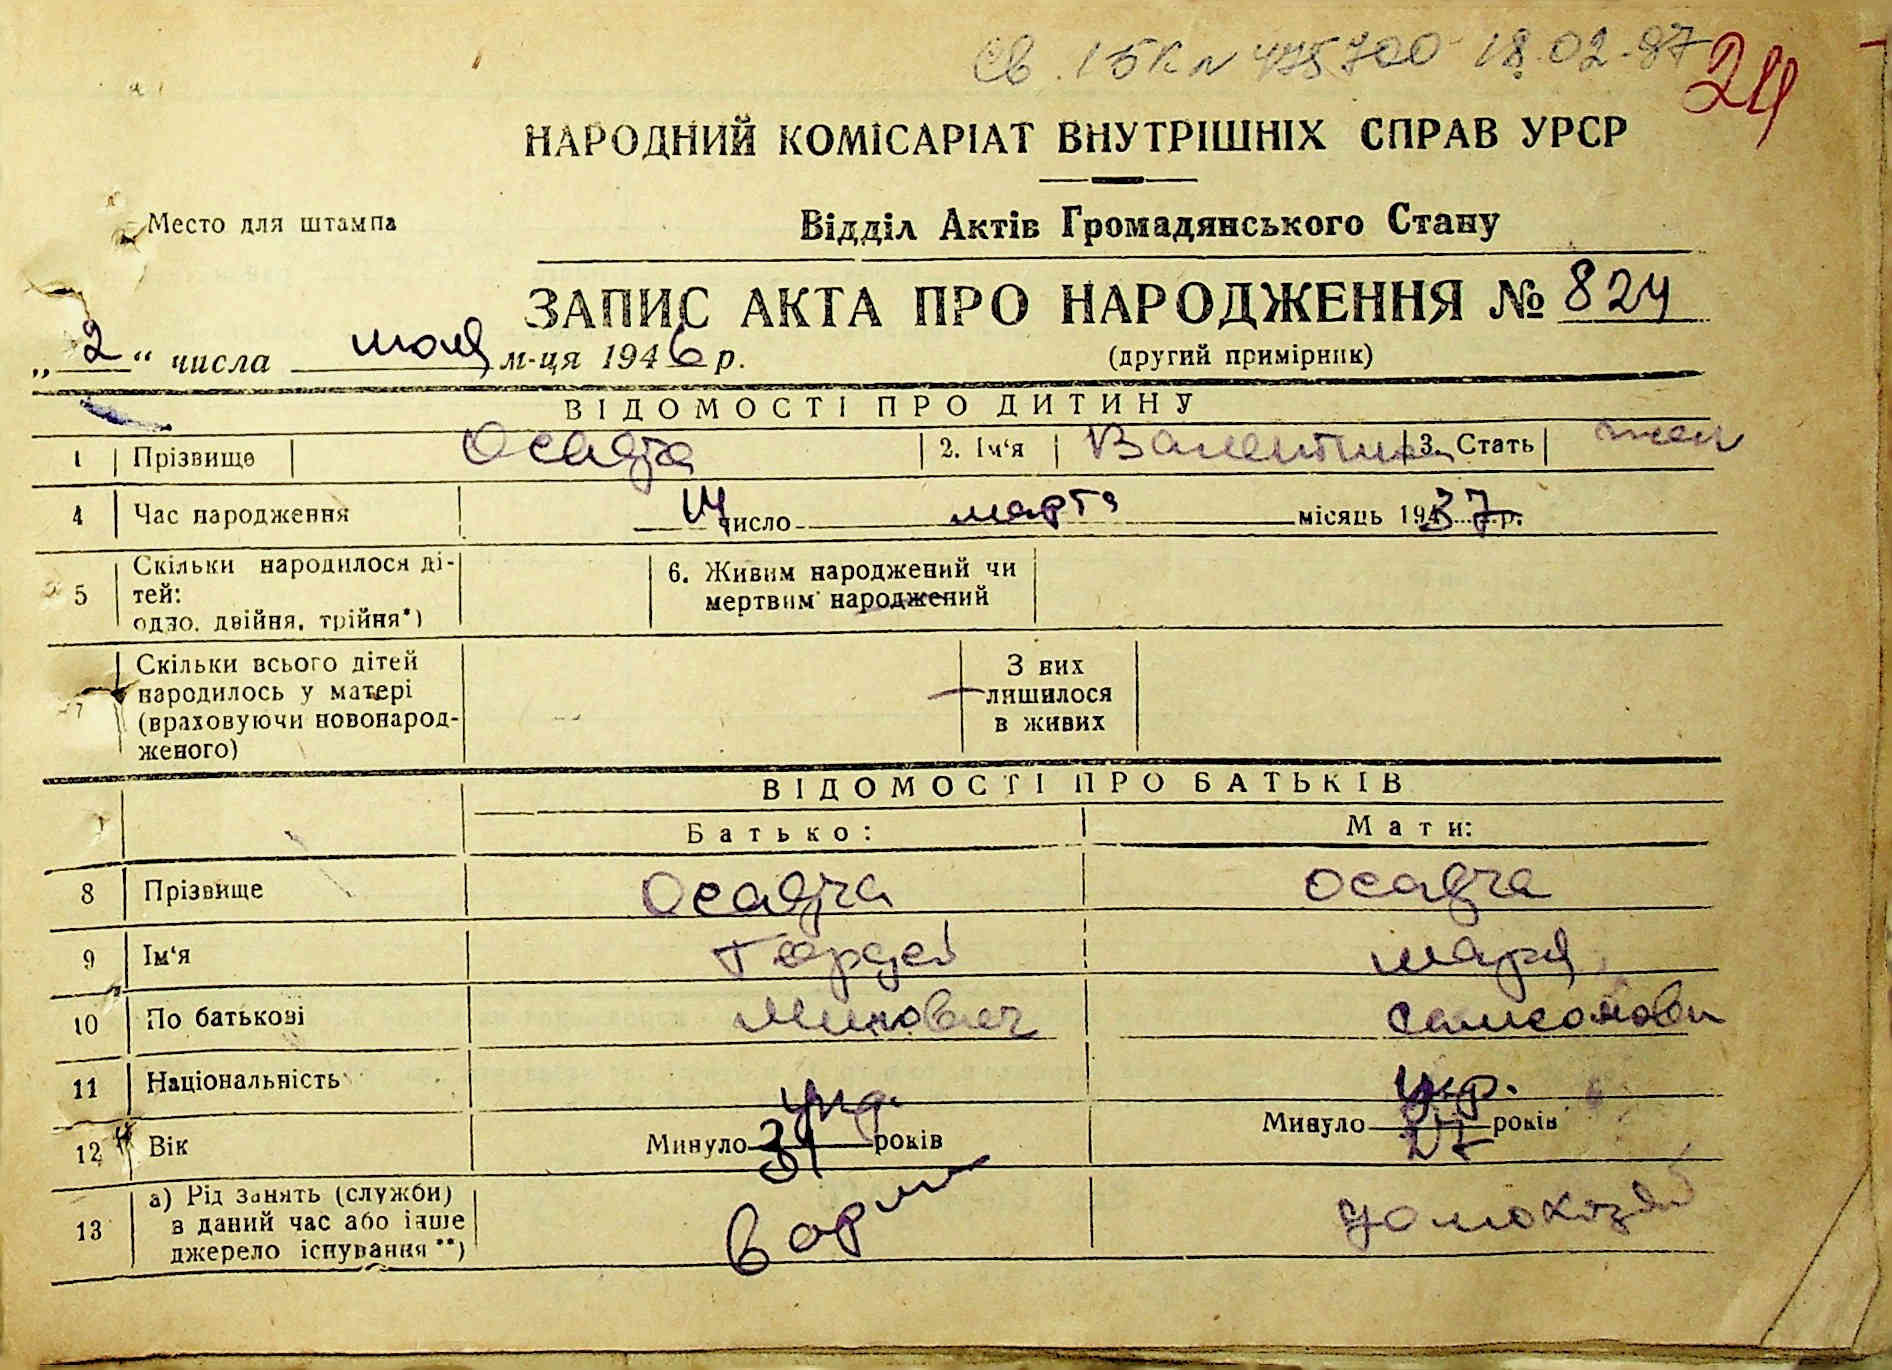 Св. 1 БК № 475700 18.02.87 24
НАРОДНИЙ КОМІСАРІАТ ВНУТРІШНІХ СПРАВ УРСР
Место для штампа
Відділ Актів Громадянського Стану
ЗАПИС АКТА ПРО НАРОДЖЕННЯ № 824
„ 2 “ числа июля м-ця 1946 р. (другий примірник)
ВІДОМОСТІ ПРО ДИТИНУ
1 Прізвище Осадча 2. Ім‘я Валентина 3. Стать жен
4 Час народження 14 число марта місяць 1937 р.
5 Скільки народилося ді-
тей:
одно, двійня, трійня*)
6. Живим народжений чи
мертвим народжений
7 Скільки всього дітей
народилось у матері
(враховуючи новонарод-
женого)
З них
лишилося
в живих
ВІДОМОСТІ ПРО БАТЬКІВ
Батько: Мати:
8 Прізвище Осадча Осадча
9 Ім‘я Гордей Мария
10 По батькові Минович Самсоновн
11 Національність укр. укр.
12 Вік Минуло 31 років Минуло 27 років
13 а) Рід занять (служби)
в даний час або інше
джерело існування **)
В арми домохозяй